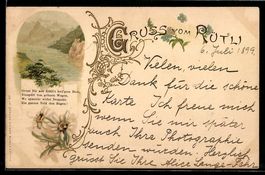 Gruss vom Rütli
6. Juli 1899.
Vielen, vielen
Dank für die schöne
Karte Ich freue mich
wenn Sie mir später
auch Ihre Photographie
senden würden. Herzlich
grüsst Sie Ihre Alice